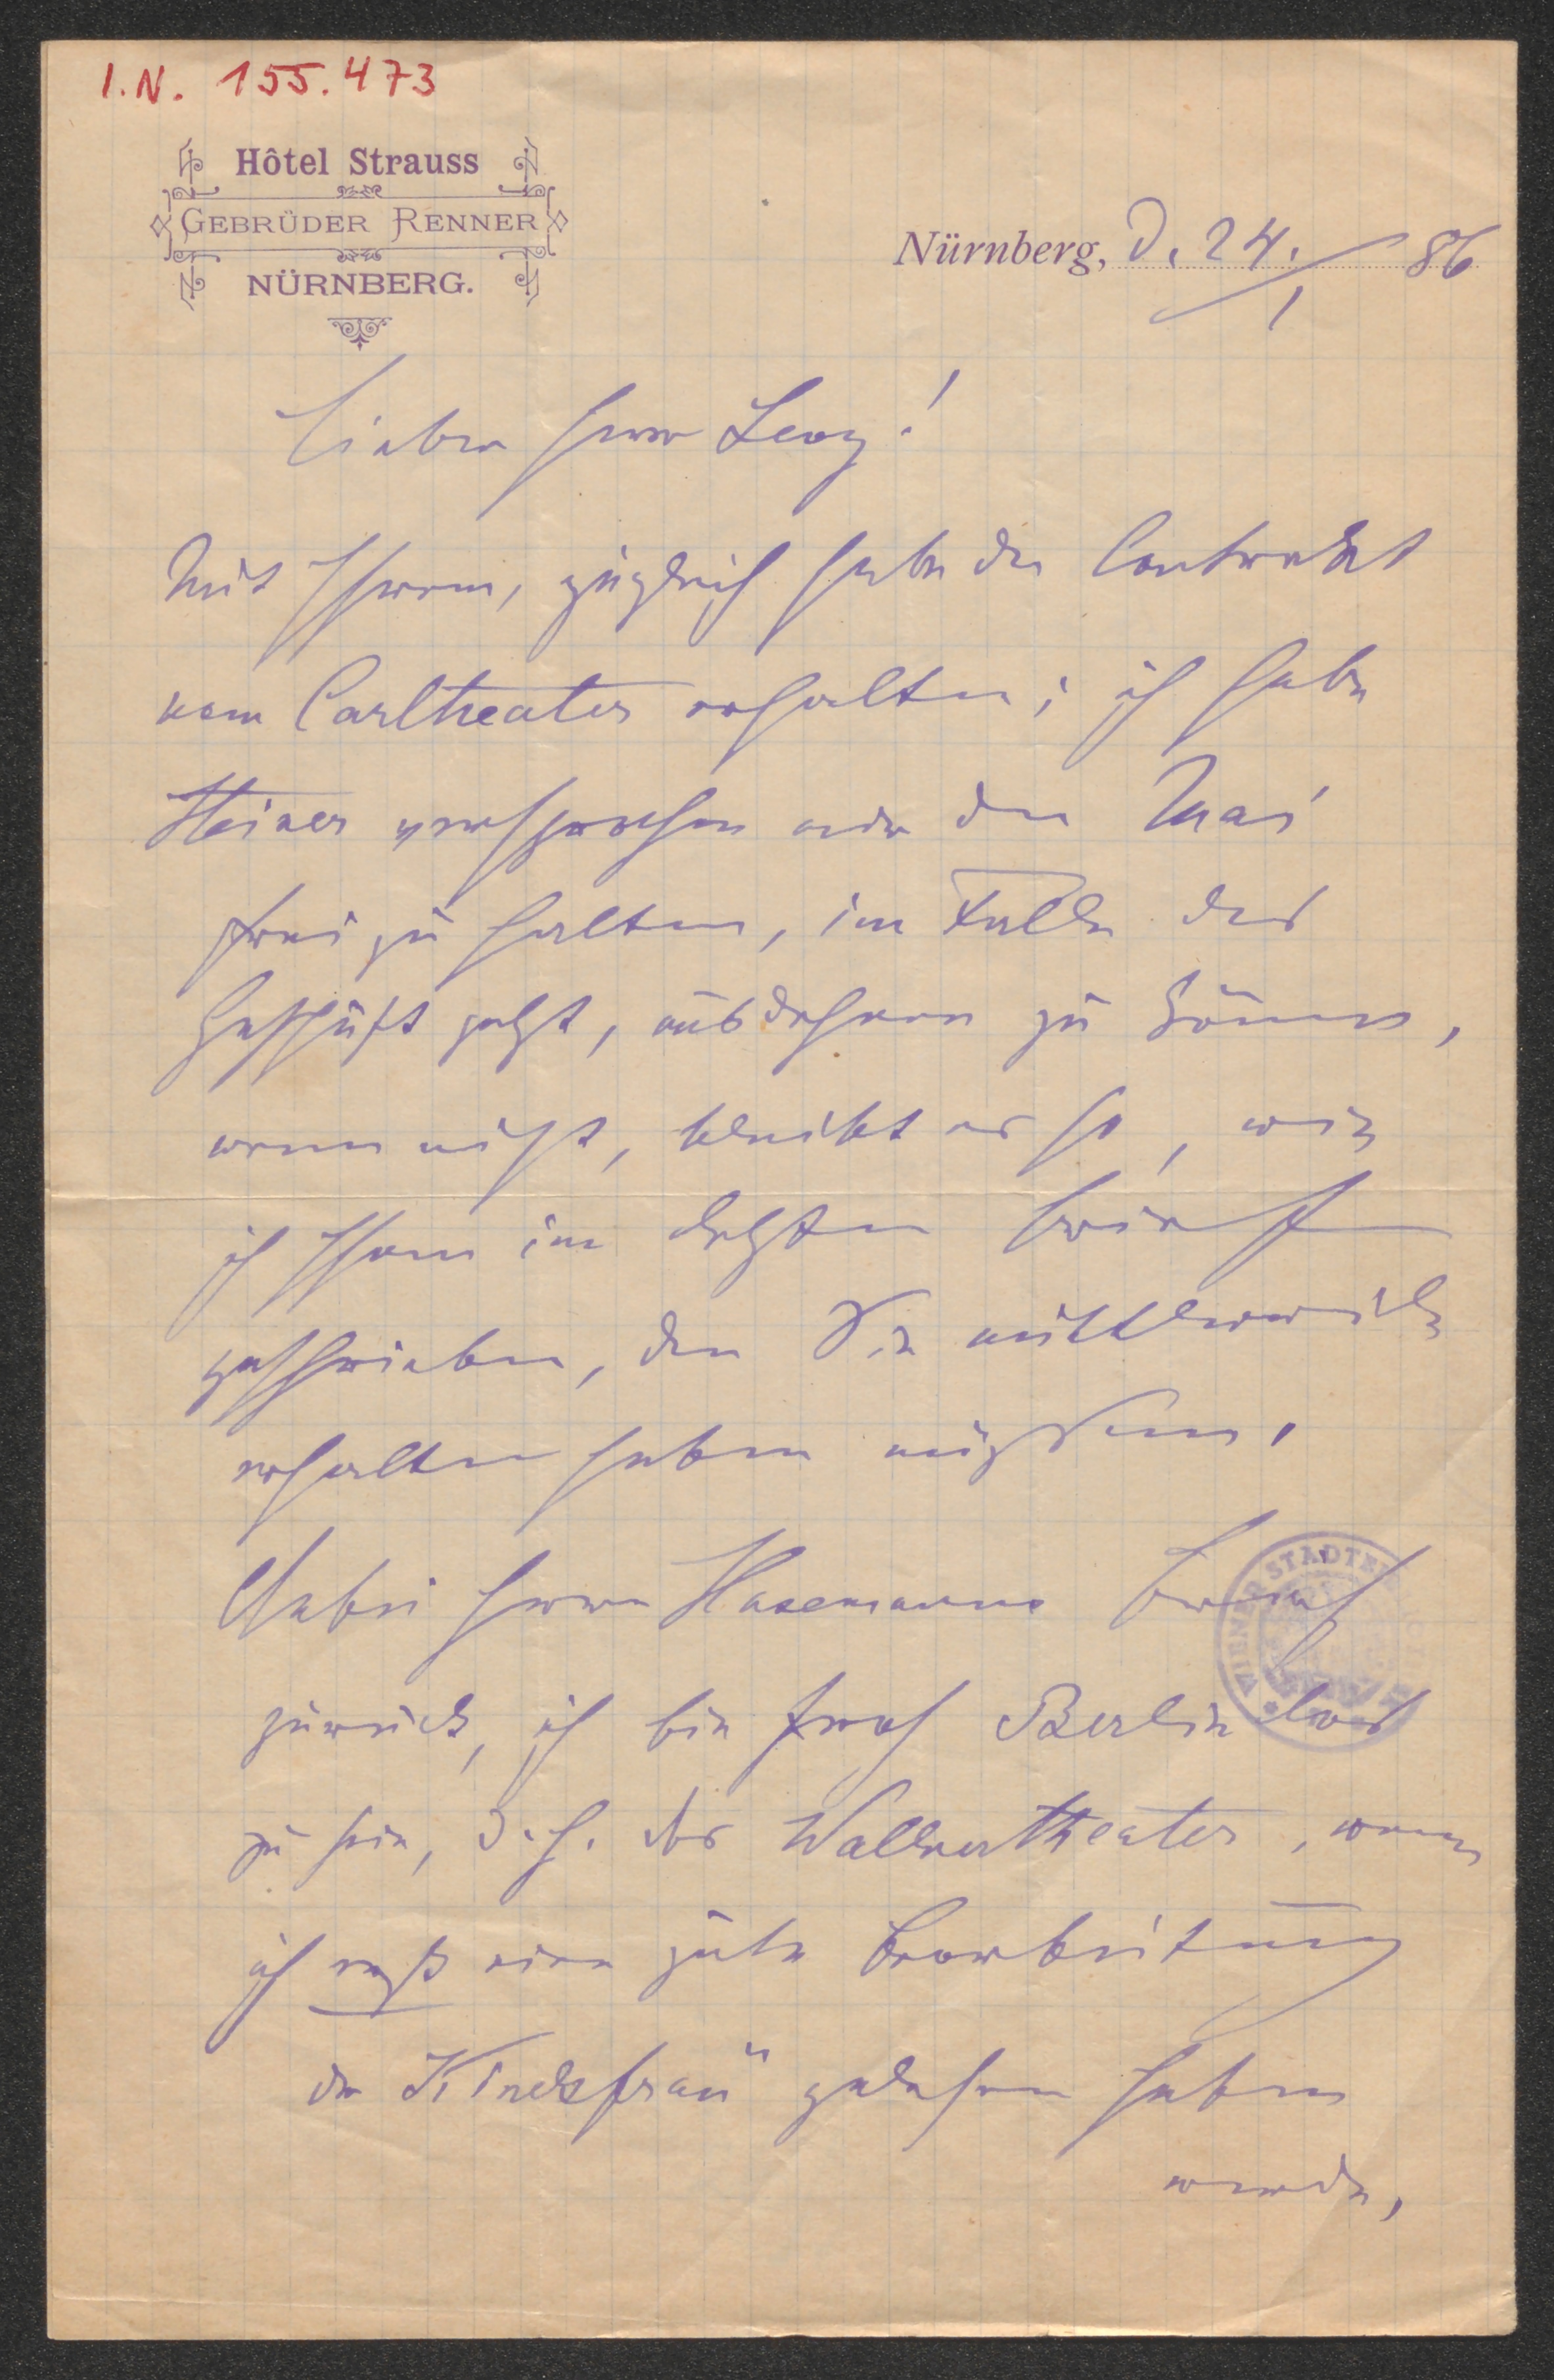 I.N. 155.473
Hôtel Strauss
GEBRÜDER RENNER
NÜRNBERG.
Nürnberg, d. 24./1 86
Lieber Herr Levy!
Mit Ihrem, zugleich habe den Contrakt
vom Carltheater erhalten; ich habe
Steiner versprochen mir den Mai
frei zu halten, im Falle das
Geschäft geht, ausdehnen zu können,
wenn nicht, bleibt es so, wie
ich Ihnen im letzten Briefe
geschrieben, den Sie mittlerweile
erhalten haben müssen.
Anbei Herrn Hasemanns Brief
zurück, ich bin froh Berlin los
zu sein, d. h. das Wallnertheater, wenn
ich erst eine gute Bearbeitung
der Kindsfrau" gelesen haben
werde,
WIENER STADT